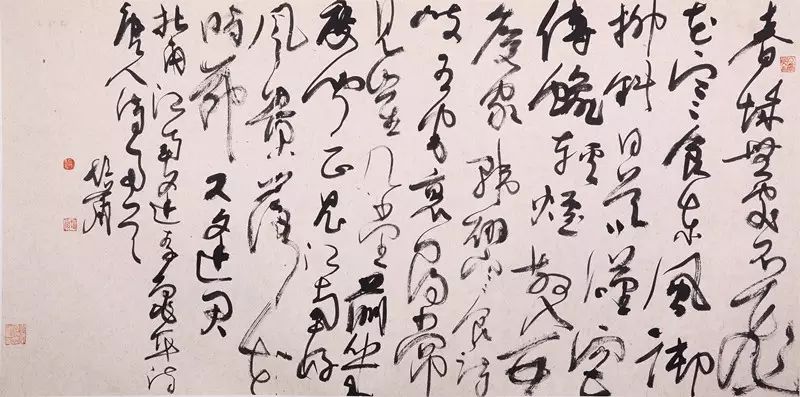 春城無處不飛
花寒食東風御
柳斜日暮漢宮
傳蠟輕煙散入五
侯家 韓翃寒食詩
岐王宅裏尋常
見崔九堂前幾
度聞正是江南好
風景落花
時節又逢君
杜甫江南逢李龜年詩
唐人詩